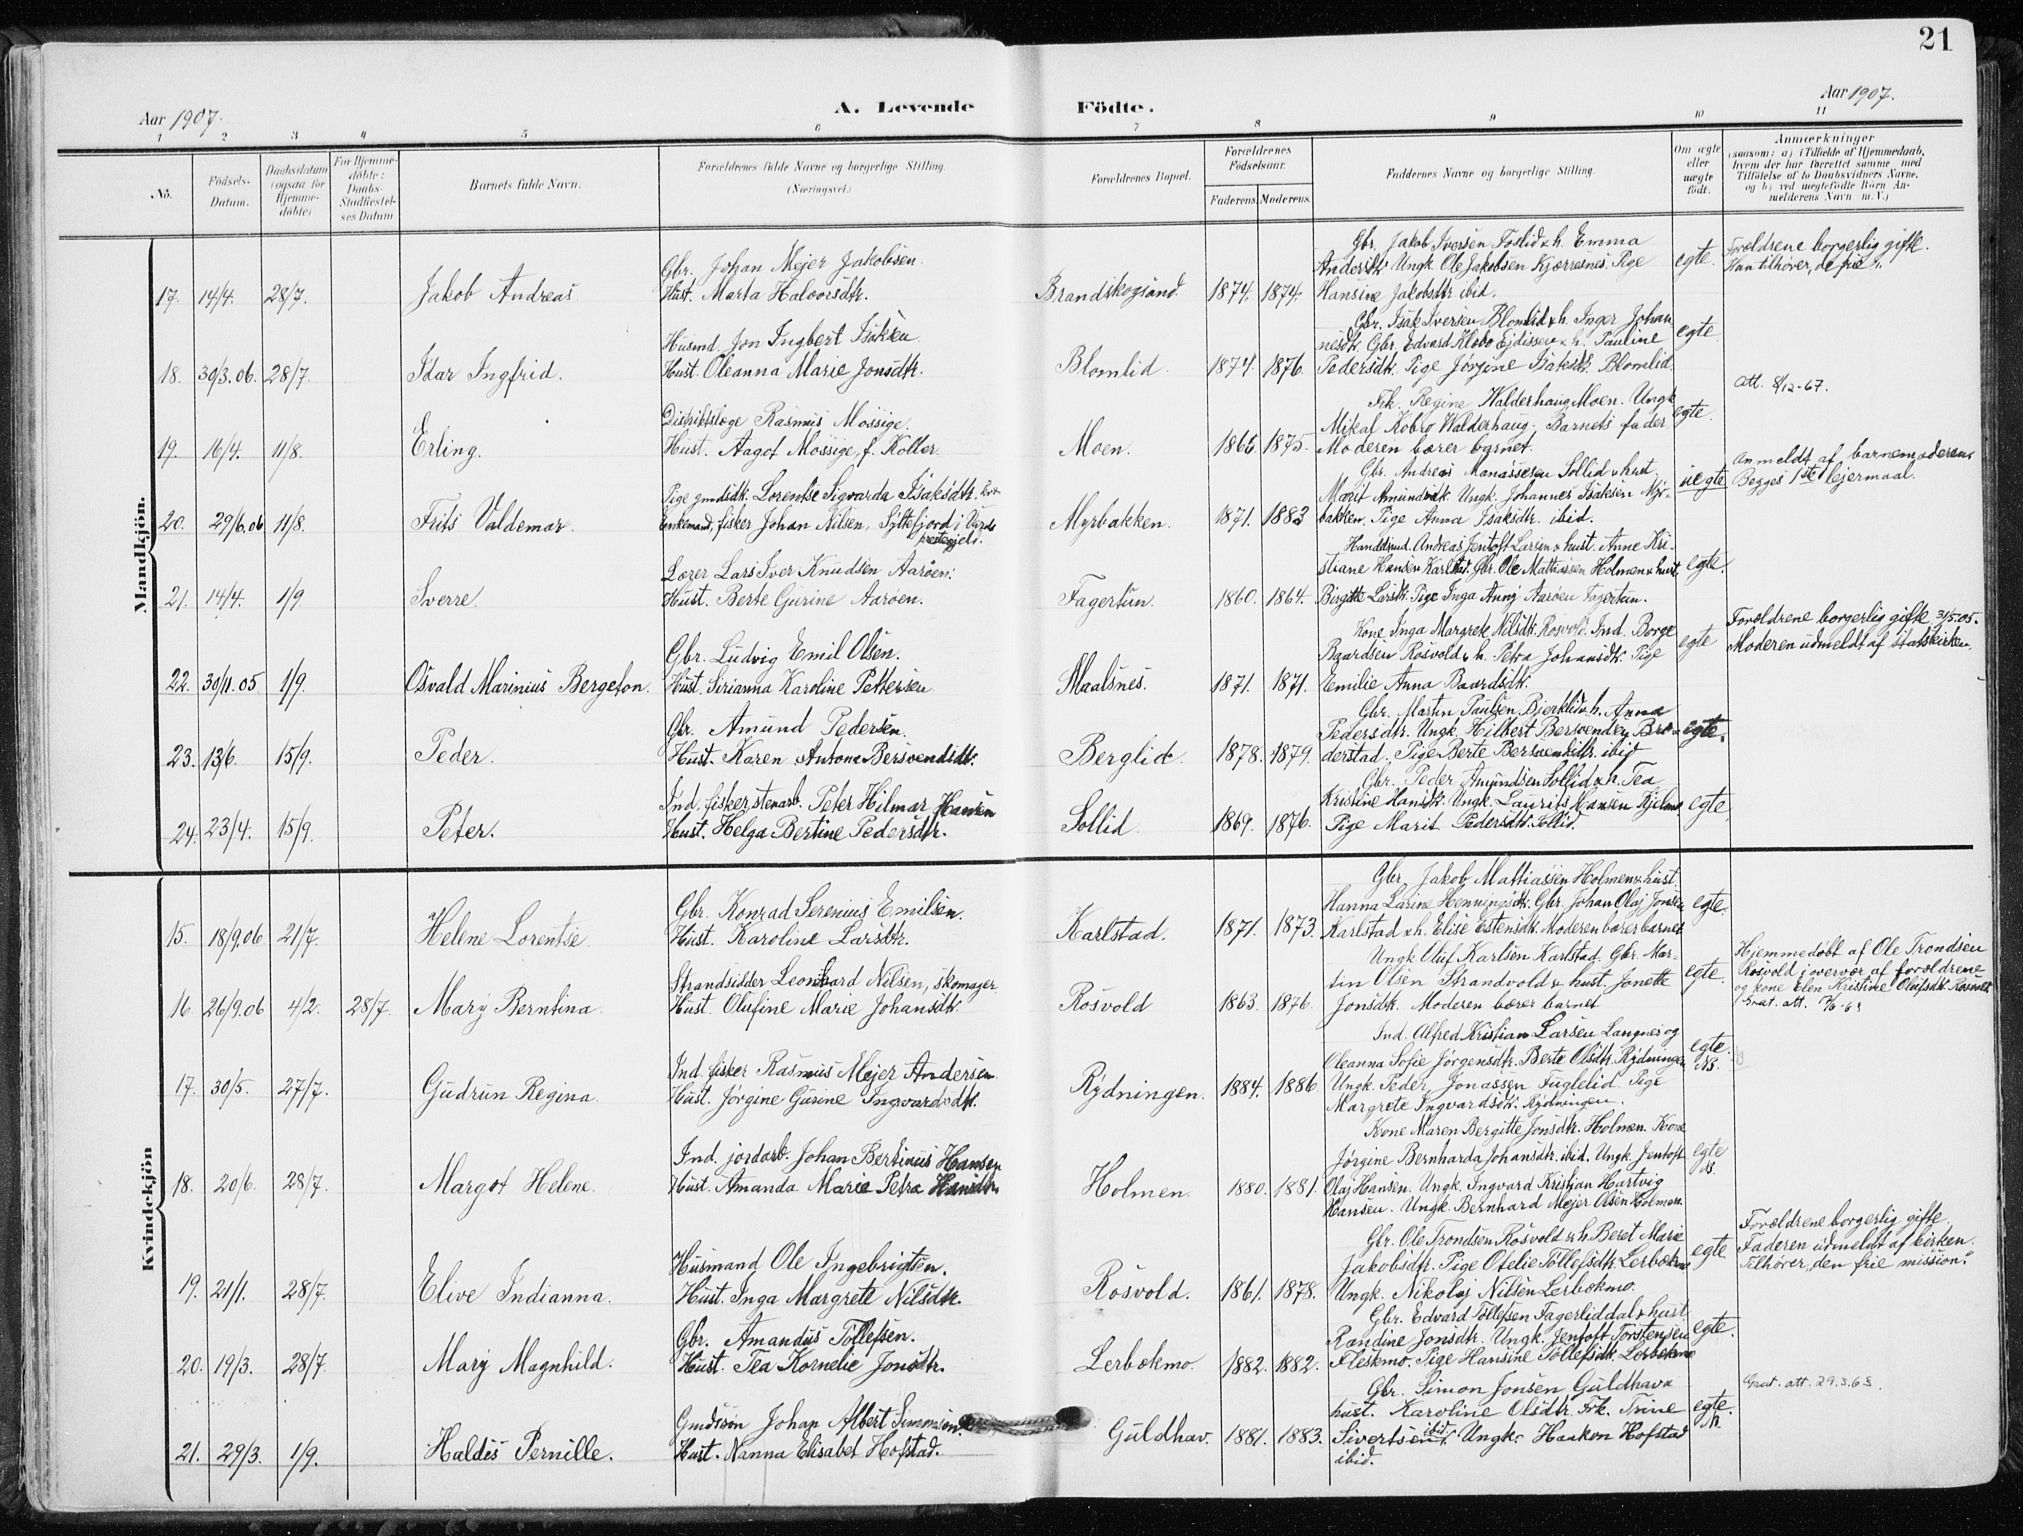 21
Aar 1907.
A. Levende Födte.
Aar 1907.
1 2 3 4 5 6 7 8 9 10 11
No.
Födsels-Datum.
Daabsdatum (ogsaa for Hjemme-döbte)
For Hjemme-döbte: Daabs-Stadfæstel-ses Datum
Barnets fulde Navn.
Forældrenes fulde Navne og borgerlige Stilling. (Næringsvei.)
Forældrenes Bopæl.
Forældrenes Födselsaar.
Faderens. Moderens.
Faddernes Navne og borgerlige Stilling.
Om ægte eller uægte födt.
Anmærkninger
(saasom: a) i Tilfælde af Hjemmedaab,
hvem der har forrettet samme, med
Tilföielse af to Daabsvidners Navne,
og b) ved uægtefödte Börn An-
melderens Navn m.V.)
Mandkjön.
Gbr. Jakob Iversen Foslid & h. Emma
Gbr. Johan Mejer Jakobsen.
Andersdtr. Ungk. Ole Jakobsen Kjærresnes. Pige
17. 14/4. 28/7. Jakob Andreas. Hust. Marta Halvorsdtr. Brandskogsand. 1874. 1874. Hansine Jakobsdtr ibid. egte.
Forældrene borgerlig gifte.
Han tilhører "de frie".
Gbr. Isak Iversen Blomlid & h. Inger Johan
Husmd. Jon Ingbert Isaksen
nesdtr. Gbr. Edvard Klobo Ejdissen & h. Pauline
18. 30/3.06. 28/7. Idar Ingfrid. Hust. Oleanna Marie Jonsdtr. Blomlid. 1874. 1876. Pedersdtr. Pige Jørgine Isaksdtr. Blomlid. egte
att. 8/12-67.
Frk. Regine Halderhaug Moen. Ungk
Distriktslæge Rasmus Mossige.
Mikal Kobro Walderhaug. Barnets fader
19. 16/4. 11/8. Erling. Hust. Aagot Mossige, f. Koller. Moen. 1865 1875. Moderen bærer barnet. egte.
Gbr. Andreas Manassesen Sollid & hust.
Pige gmdsdtr. Lorentse Sigvarda Isaksdtr.
Marit Amundsdtr. Ungk. Johannes Isaksen Myr-
20. 29/6.06 11/8. Frits Valdemar. Enkemand, fisker Johan Nilsen, Syltefjord i Vardø
prestegjeld. Myrbakken. 1871. 1883 bakken. Pige Anna Isaksdtr. ibid. uegte
Anmeldt af barnemoderen.
Begges 1ste lejermaal.
Handelsmd. Andreas Jentoft Larsen & hust. Anne Kri-
Lærer Lars Iver Knudsen Aarøen.
stiane Hansen Karlstad. Gbr. Ole Mattiassen Holmen & hust
21. 14/4. 1/9. Sverre. Hust. Berte Gurine Aarøen. Fagertun. 1860. 1864. Birgitte Larsdtr. Pige Inga Anny Aarøen Fagertun. egte.
Kone Inga Margrete Nilsdtr. Rosvold. Ind. Borge
Gbr. Ludvig Emil Olsen.
Baardsen Rosvold & h. Petra Johansdtr. Pige
22. 30/11.05 1/9. Osvald Marinius Bergeton. Hust. Sirianna Karoline Pettersen Maalsnes. 1871. 1871. Emilie Anna Baardsdtr. egte
Forældrene borgerlig gifte 31/5.05.
Moderen udmeldt af statskirken.
Gbr. Martin Paulsen Bjerklid & h. Anna
Gbr. Amund Pedersen.
Pedersdtr. Ungk. Hilbert Bersvendsen Bra-
23. 13/6. 15/9. Peder. Hust. Karen Antona Bersvendsdtr. Berglid. 1878. 1879. derstad. Pige Berte Bersvendsdtr. ibid egte.
Gbr. Peder Amundsen Sollid & h. Tea
Ind. fisker, stenarb. Peter Hilmar Hansen
Kristine Hansdtr. Ungk. Laurits Hansen
24. 23/4. 15/9. Peter. Hust. Helga Bertine Pedersdtr. Sollid. 1869. 1876. Pige Marit Pedersdtr. Sollid. egte.
Kvindekjön
Gbr. Jakob Mattiassen Holmen & hust.
Gbr. Konrad Serenius Emilsen.
Hanna Larine Henningsdtr. Gbr. Johan Olaj Jonsen
15. 18/9.06 21/7. Helene Lorentse. Hust. Karoline Larsdtr. Karlstad. 1871. 1873. Karlstad & h. Elise Estensdtr. Moderen bærer barnet egte.
Ungk Oluf Karlsen Karlstad. Gbr. Mar-
Strandsidder Leonhard Nilsen, skomager.
tin Olsen Strandvold & hust. Jonette
16. 26/9.06 4/2. 28/7. Mary Berntina. Hust. Olufine Marie Johansdtr. Rosvold 1863. 1876. Jonsdtr. Moderen bærer barnet egte.
Hjemmedøbt af Ole Trondsen
Rosvold i overvær af forældrene
og kone Elen Kristine Olufsdtr Rosvold
Ind. Alfred Kristian Larsen Langnes og
Oleanna Sofie Jørgensdtr. Berte Olsdtr. Rydningen
Ind. fisker Rasmus Mejer Andersen
17. 30/5. 27/7. Gudrun Regina. Hust. Jørgine Gurine Ingvardsdtr. Rydningen. 1884. 1886. Ungk. Peder Jonassen Fuglelid. Pige egte.
Margrete Ingvardsdtr. Rydningen.
Kone Maren Bergitte Jonsdtr. Holmen. Kone
Ind. jordarb. Johan Bertinius Hansen
Jørgine Bernharda Johansdtr. ibid. Ungk. Jentoft
18. 20/6. 28/7. Margot Helene. Hust. Amanda Marie Petra Hansdtr. Holmen. 1880. 1881. Olaj Hansen. Ungk. Ingvard Kristian Hartvig egte
Hansen. Ungk. Bernhard Mejer Olsen Holmen.
Gbr. Ole Trondsen Rosvold & h. Beret Marie
Husmand Ole Ingebrigtsen.
Jakobsdtr. Pige Ofelie Tollefsdtr. Lerbækmo
19. 21/1. 28/7. Elive Indianna. Hust. Inga Margrete Nilsdtr. Rosvold. 1861. 1878. Ungk. Nikolaj Nilsen Lerbækmo. egte
Forældrene borgerlig gifte.
Faderen udmeldt af kirken.
Tilhører "den frie mission".
Gbr. Edvard Tollefsen Fagerliddal & hust.
Gbr. Amandus Tollefsen.
Randine Jonsdtr. Ungk. Jentoft Torstensen
20. 19/3. 28/7. Mary Magnhild. Hust. Tea Kornelie Jonsdtr. Lerbækmo. 1882. 1882. Fleskmo. Pige Hansine Tollefsdtr. Lerbækmo egte.
Gbr. Simon Jonsen Guldhav &
Grat. att. 29.3.63.
Gmdssøn Johan Albert Simonsen.
hust. Karoline Olsdtr. Frk. Trine
21. 29/3. 1/9. Haldis Pernille. Hust. Nanna Elisabet Hofstad. Guldhav. 1881. 1883. Sivertsen ibid. Ungk. Haakon Hofstad egte.
ibid.